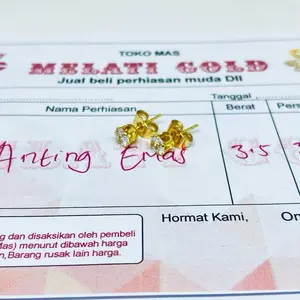 TOKO MAS
MELATI GOLD
Jual beli perhiasan muda Dll
Tanggal
Nama Perhiasan Berat
Anting Emas 3.5
Hormat Kami,
dan disaksikan oleh pembeli
menurut dibawah harga
Barang rusak lain harga.